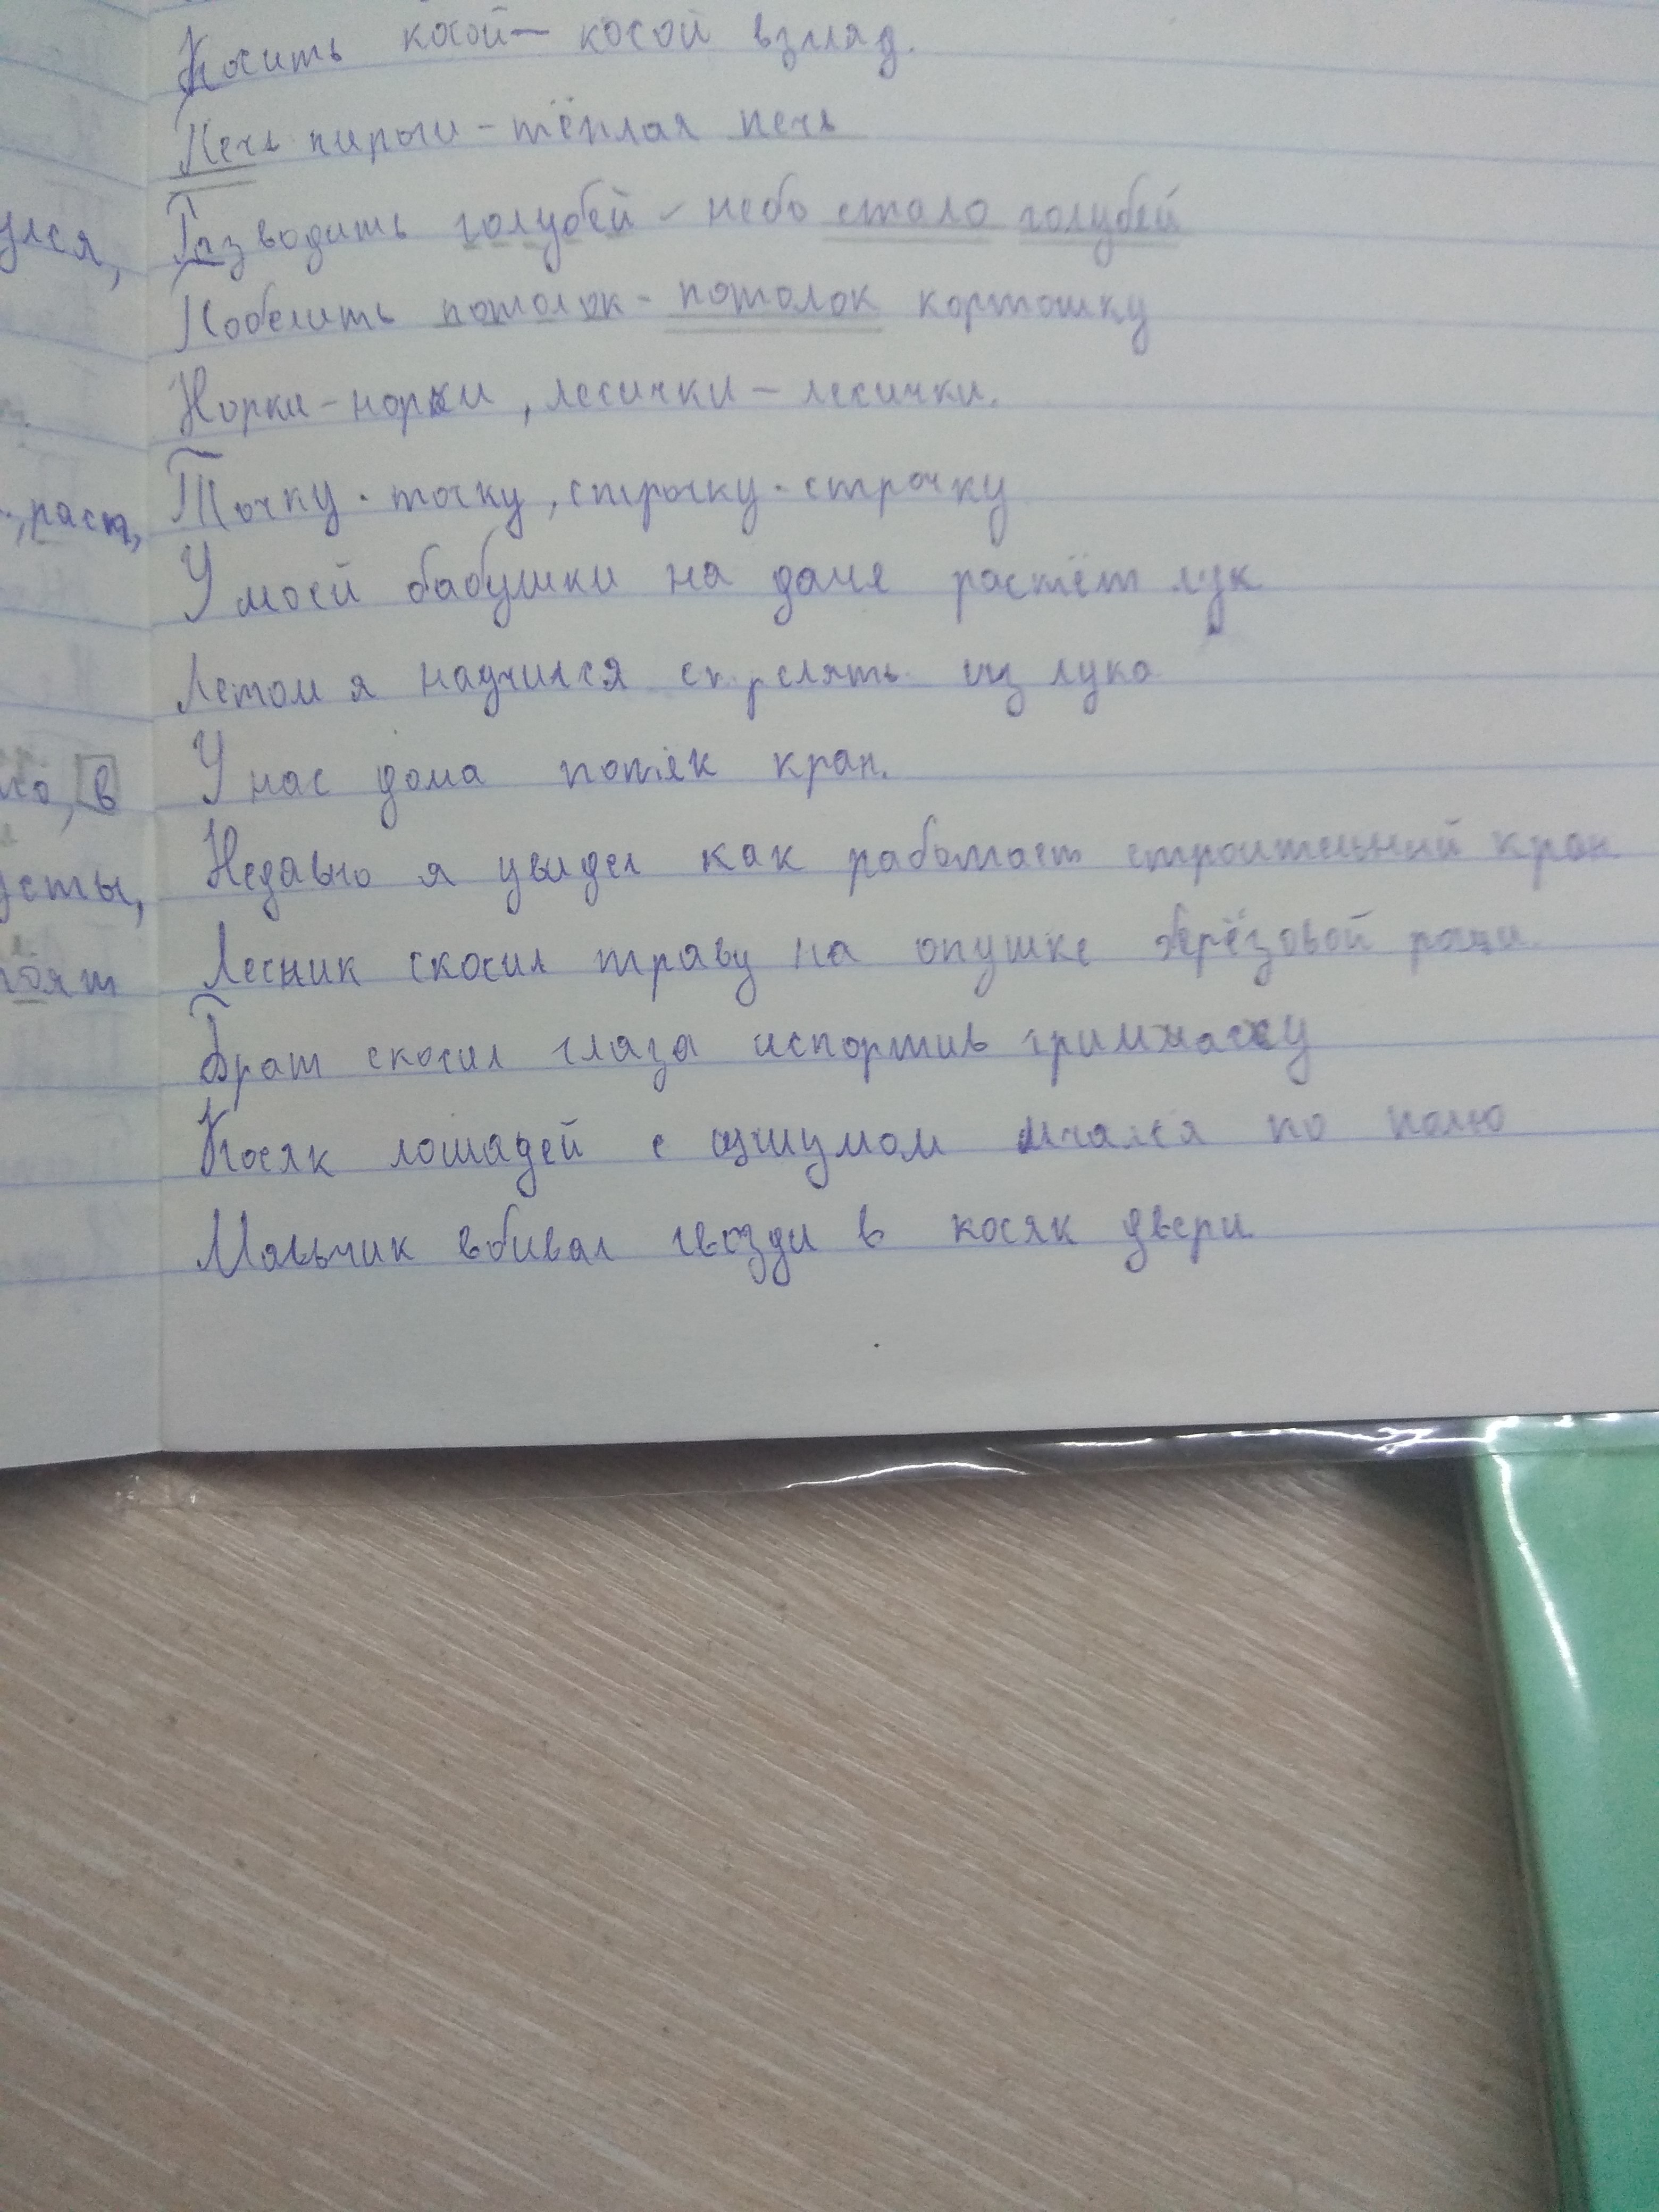 Косить косой – косой взгляд.
Печь пироги – тёплая печь
улся,
Разводить голубей – небо стало голубей
Побелить потолок – потолок кортошку
Норки – норки, лесички – лесички.
Точку - точку, строчку - строчку
раст,
У моей бабушки на даче растёт лук
Летом я научился стрелять из лука
У нас дома потёк кран.
в
Недавно я увидел как работает строительный кран
усты,
Лесник скосил траву на опушке берёзовой рощи.
оят
Брат скосил глаза испортив гримнаску
Косяк лошадей с шумом мчался по полю
Мальчик вбивал гвозди в косяк двери